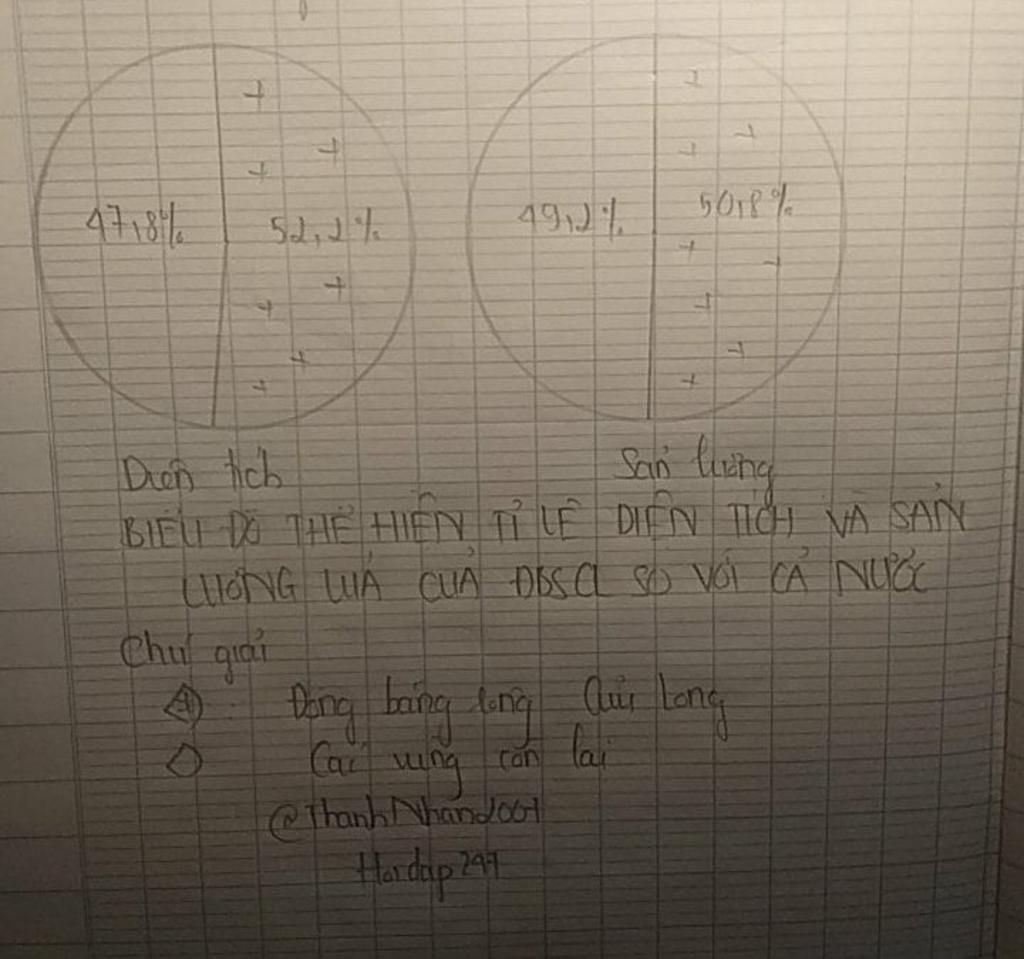 47,8%
52,2%
49,2%
50,8%
Diện tích
Sản lượng
BIỂU ĐỒ THỂ HIỆN TỈ LỆ DIỆN TÍCH VÀ SẢN
LƯỢNG LÚA CỦA ĐBSCL SO VỚI CẢ NƯỚC
Chú giải
Đồng bằng sông Cửu Long
Các vùng còn lại
@ThanhNhan2001
Hoidap247